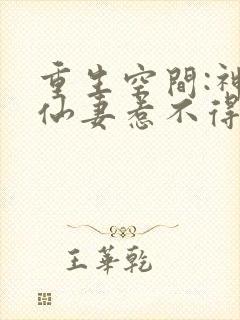 重生空間:神
仙妻惹不得
王華乾